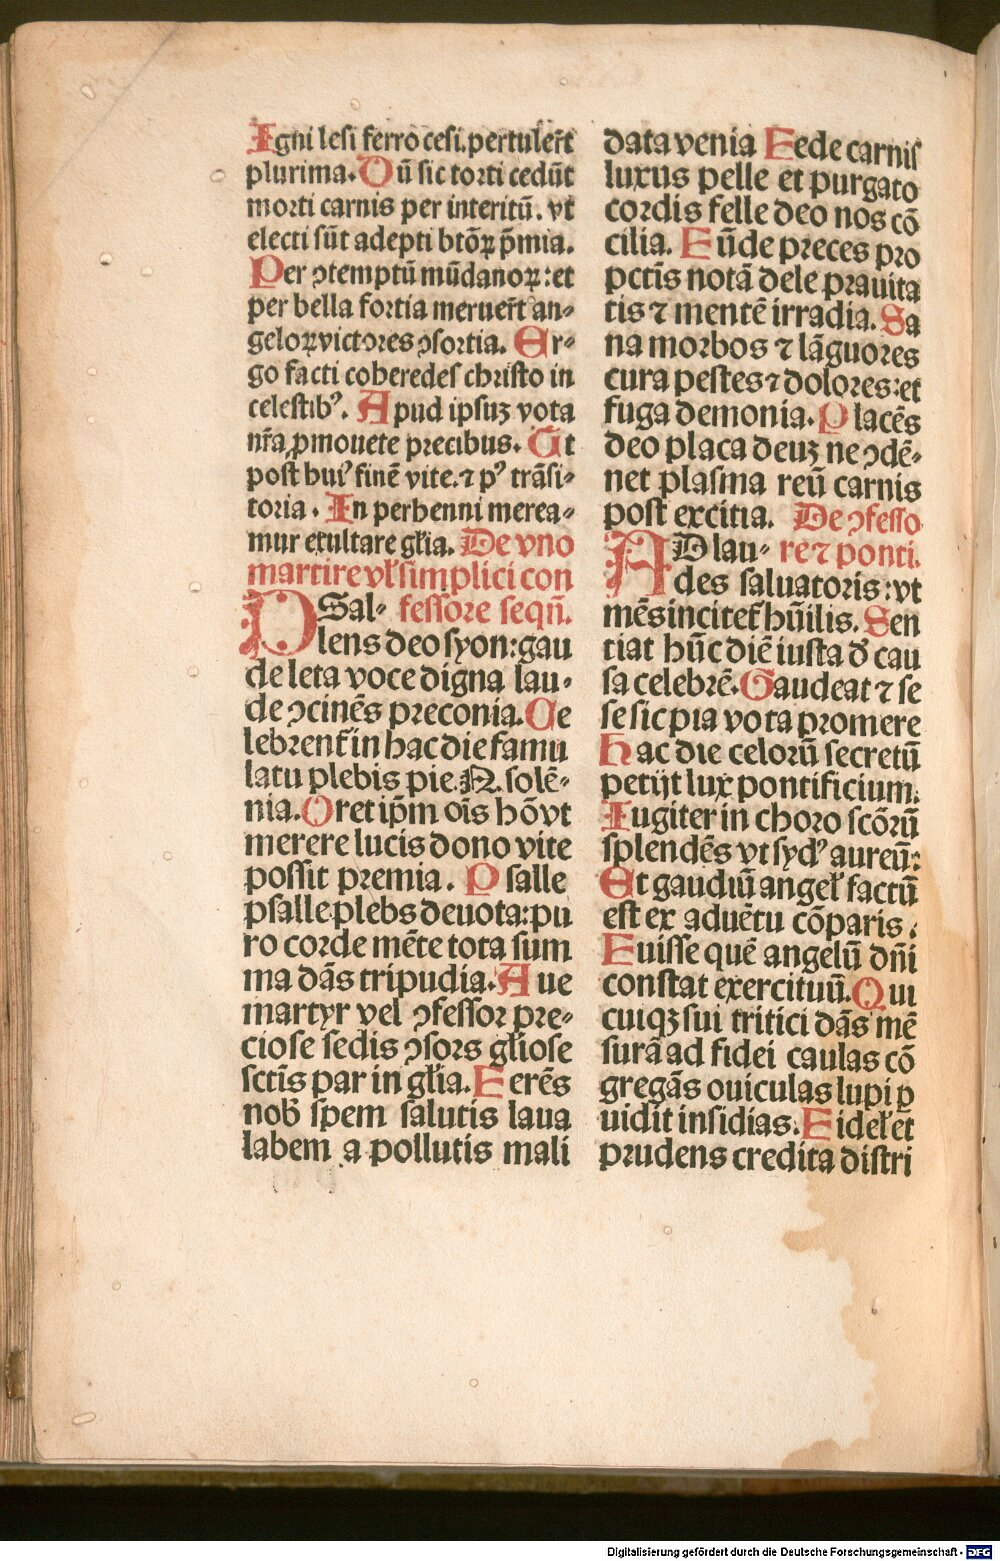 Igni lesi ferro cesi.pertuler̃t
plurima.Dũ sic torti cedũt
morti carnis per interitũ. vt
electi sũt adepti btõꝝ p̃mia.
Per ꝯtemptũ mũdanoꝝ:et
per bella fortia meruer̃t an-
geloꝝ victores ꝯsortia. Er-
go facti coheredes christo in
celestibꝰ. Apud ipsuz vota
nr̃a ꝓmouete precibus. Et
post huiꝰ finẽ vite.⁊ pꝰ trãsi-
toria. In perhenni merea-
mur exultare gl̃ia. De vno
martire vl̃ simplici con
PSal- fessore seqñ.
lens deo syon:gau
de leta voce digna lau-
de ꝯcinẽs preconia.Ce
lebrent̃ in hac die famu
latu plebis pie.N. solẽ-
nia.Oret ip̃m oĩs hõ vt
merere lucis dono vite
possit premia. Psalle
psalle plebs deuota:pu
ro corde mẽte tota sum
ma dãs tripudia.Aue
martyr vel ꝯfessor pre-
ciose sedis ꝯsors gl̃iose
sctĩs par in gl̃ia.Ferẽs
nob̃ spem salutis laua
labem a pollutis mali
data venia Fede carnis
luxus pelle et purgato
cordis felle deo nos cõ
cilia. Fũde preces pro
pctĩs notã dele prauita
tis ⁊ mentẽ irradia. Sa
na morbos ⁊ lãguores
cura pestes ⁊ dolores:et
fuga demonia. Placẽs
deo placa deuz ne ꝯdẽ-
net plasma reũ carnis
post excitia. De ꝯfesso
ADlau- re ⁊ ponti.
des saluatoris:vt
mẽs incitet̃ hũilis. Sen
tiat hũc diẽ iusta d̃ cau
sa celebrẽ.Gaudeat ⁊ se
se sic pia vota promere
Hac die celorũ secretũ
petijt lux pontificium.
Iugiter in choro scõrũ
splendẽs vt sydꝰ aureũ:
Et gaudiũ angel̃ factũ
est ex aduẽtu cõparis.
Fuisse quẽ angelũ dñi
constat exercituũ.Qui
cuiqꝫ sui tritici dãs mẽ
surã ad fidei caulas cõ
gregãs ouiculas lupi ꝓ
uidit insidias.Fidel̃ et
prudens credita distri
Digitalisierung gefördert durch die Deutsche Forschungsgemeinschaft - DFG